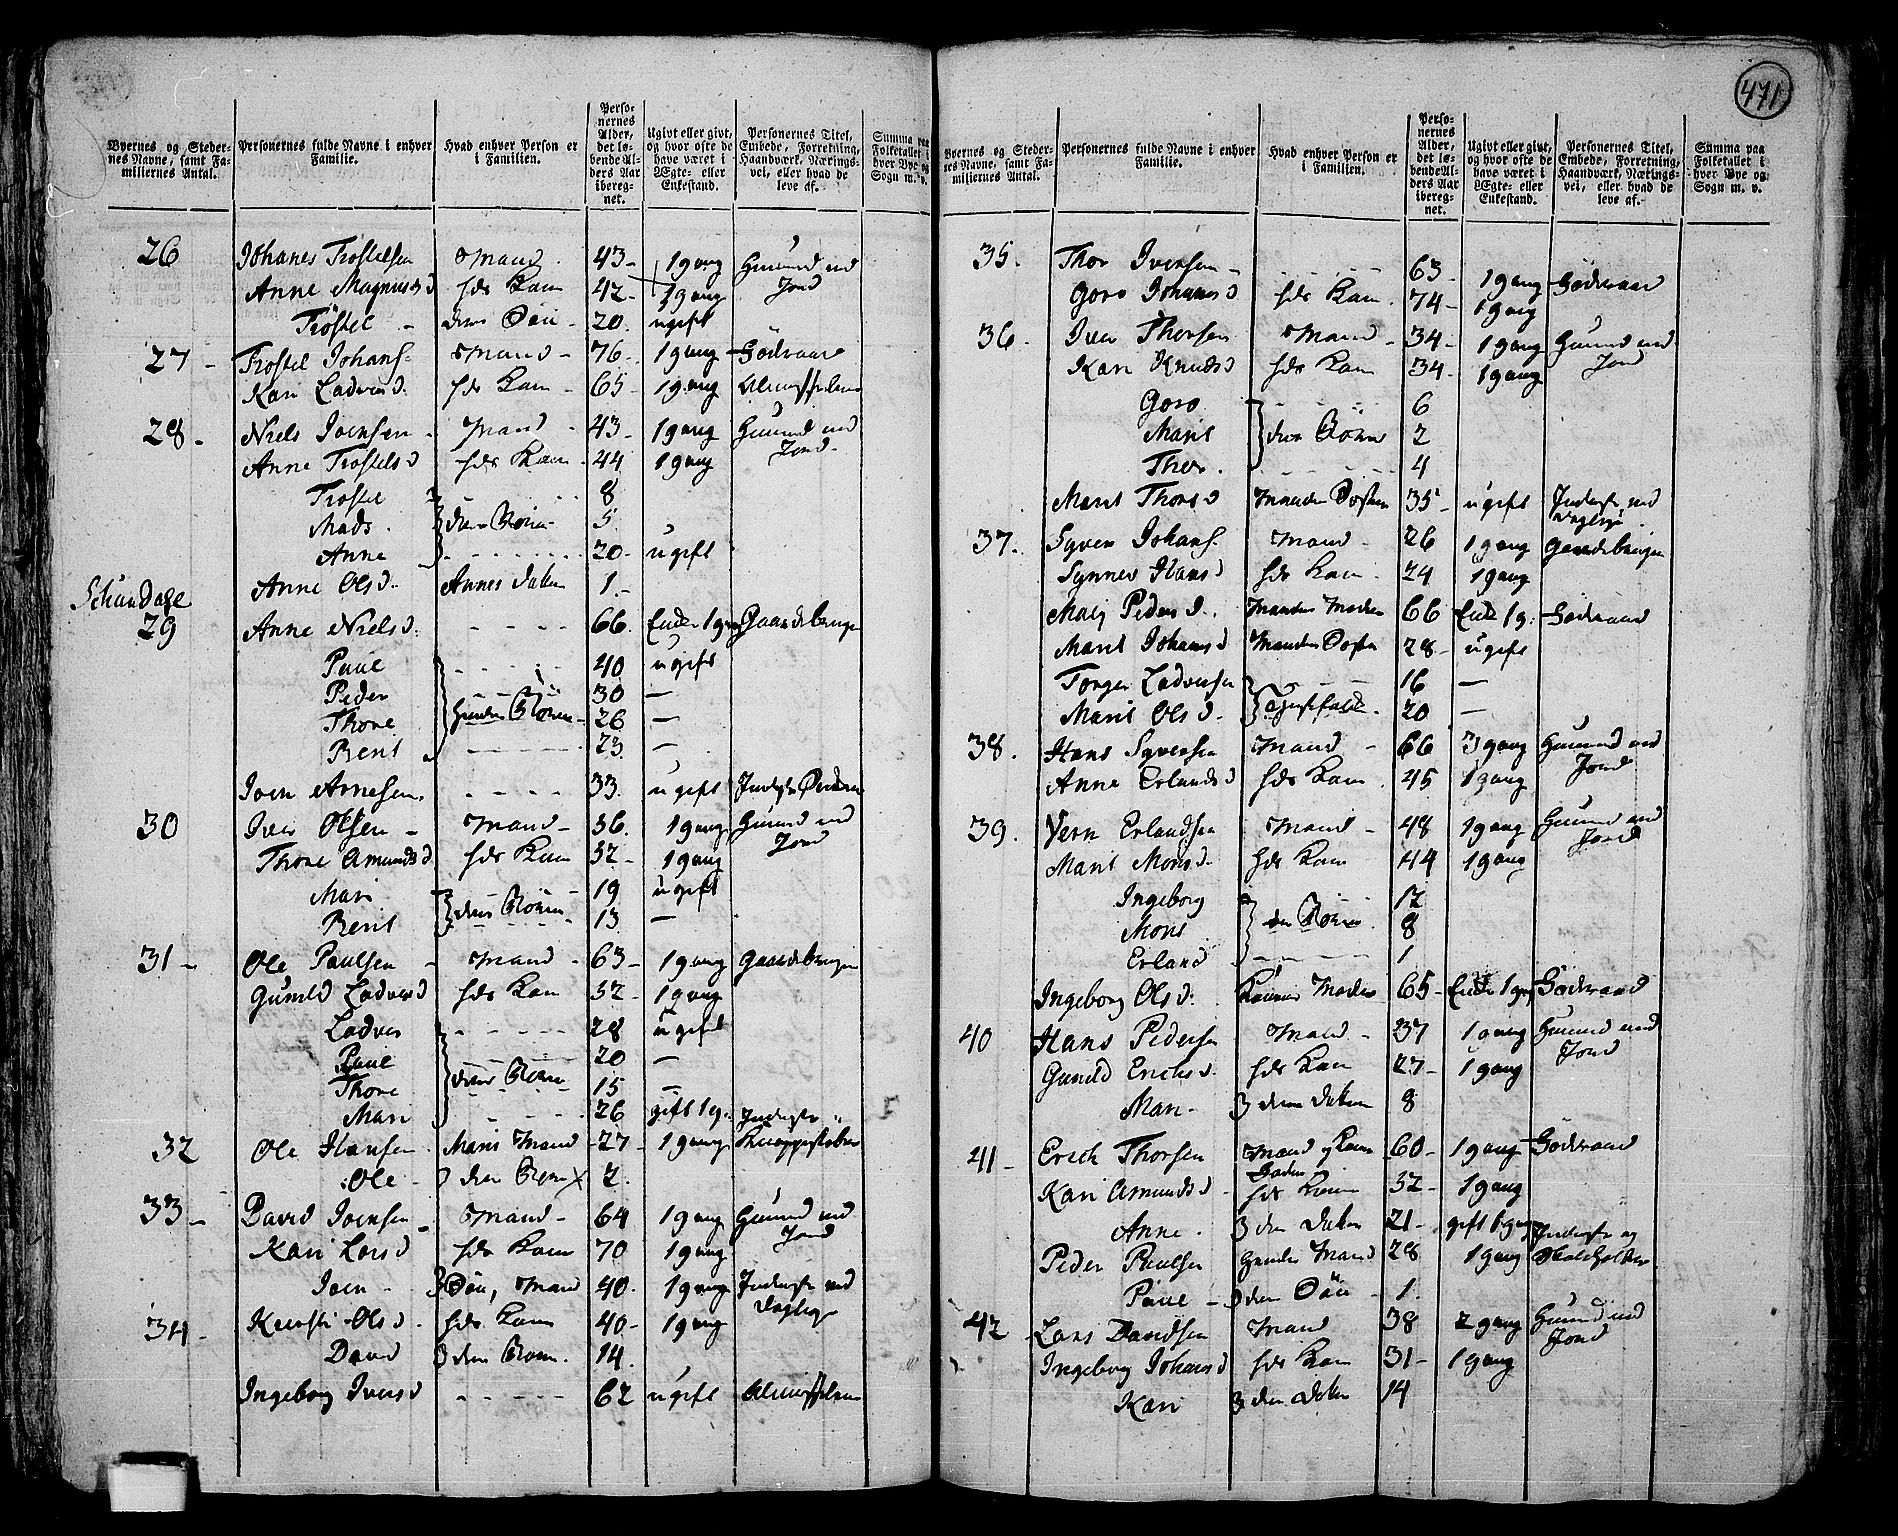 471
Byernes og Stedernes Navne, samt Familiernes Antal. Personernes fulde Navne i enhver Familie. Hvad enhver Person er i Familien. Personernes Alder, det løbende Alders Aar iberegnet. Ugivt eller givt, og hvor ofte de have været i Ægte- eller Enkestand. Personernes Titel, Embede, Forretning, Haandværk, Næringsvei, eller hvad de leve af. Summa paa Folketallet i hver Bye og Sogn m. v.
26 Johanes Trostelsen Mand 43 1 gang Huusmd md Jord
Anne Magnusd hds Kone 42 1 gang
Trostel deres Søn 20 ugift
27 Trostel Johans Mand 76 1 gang Födraad
Kari Ladvesd hds Kone 65 1 gang
28 Niels Joensen Mand 43 1 gang Huusmd md Jord
Anne Trostelsd hds Kone 44 1 gang
Trostel 8
Mads deres Börn 5
Anne 20 ugift
Anne Olsd Annes Dater 1
29 Anne Nielsd 66 Enke 1 gang Gaardebruger
Paul 40 ugift
Peder 30 —
Thore hendes Börn 26 —
Berit 23 —
Joen Arnesen 33 ugift
30 Iver Olsen Mand 56 1 gang Huusmd md Jord
Thore Amundsd hds Kone 52 1 gang
Mari 19 ugift
Berit deres Börn 13 —
31 Ole Paulsen Mand 63 1 gang Gaardebruger
Gunild Ladvesd hds Kone 52 1 gang
Ladves 28 ugift
Paul 20 —
Thore deres Börn 15 —
Mari 26 gift 1 g.
32 Ole Hansen Maris Mand 27 1 gang
Ole 2
33 David Joensen Mand 64 1 gang Huusmd md Jord
Kari Larsd hds Kone 70 1 gang
Joen Søn, Mand 40 1 gang Inderste md
34 Kiersti Olsd hds Kone 40 1 gang
David 14
Ingeborg Iversd 62 ugift
35. Thor Iversen 63 1 gang Födraad
Goro Johansd hds Kone 74 1 gang
36. Iver Thorsen Mand 34 1 gang Huusmd md Jord
Kari Knudsd hds Kone 34 1 gang
Goro 6
Marit deres Börn 2
Thor 4
Marit Thorsd Mandens Søster 35 ugift Inderste md
37. Syver Johans Mand 26 1 gang Gaardebruger
Synnev Hansd hds Kone 24 1 gang
Marj Pedersd. Mandens Moder 66 Enke 1 g. Födraad
Marit Johansd Mandens Søster 28 ugift
Torger Ladvesen 16 —
Marit Olsd. Tjenestefolk 20 —
38. Hans Syversen Mand 66 3 gang Huusmd md Jord
Anne Erlandsd hds Kone 45 1 gang
39. Erlandsen Mand 48 1 gang Huusmd md Jord
Marit Monsd. hds Kone 44 1 gang
Ingeborg 12
Mons deres Börn 8
Erland 1
Ingeborg Olsd. Konens Moder 65 Enke 1 gang Födraad
40 Hans Pedersen Mand 37 1 gang Huusmd md Jord
Gunild Erichsd. hds Kone 27 1 gang
Mari deres Dater 8
41 Erich Thorsen Mand 60 1 gang Födraad
Kari Amundsd hds Kone 52 1 gang
Anne deres Dater 21 gift 1 gang
Peder Paulsen hendes Mand 28 1 gang Inderste og
Paul deres Søn 1
42 Lars Davidsen Mand 38 2 gang Huusmd md Jord
Ingeborg Johansd hds Kone 31 1 gang
Kari deres Dater 14